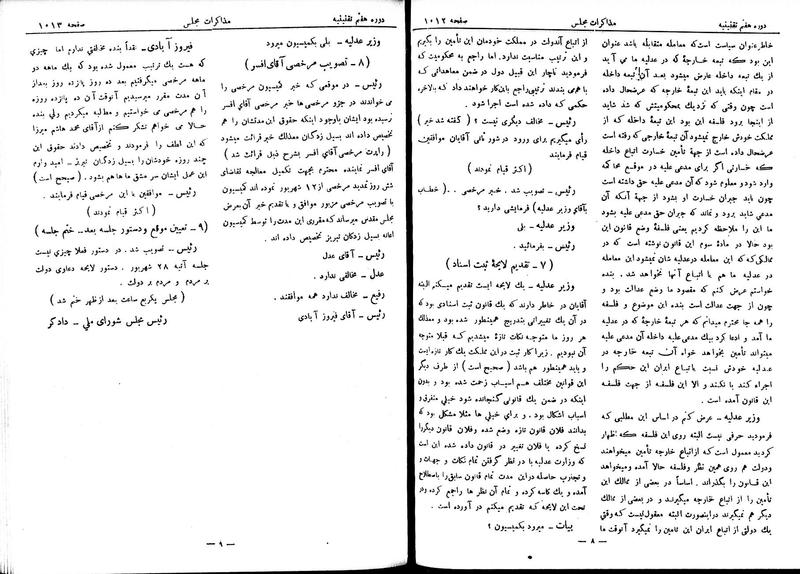 دوره هفتم تقنینیه
مذاکرات مجلس
صفحه ۱۰۱۲
خاطر عنوان سیاست است که معامله متقابله باشد عنوان
این بود که تبعه خارجه که در عدلیه ما می آید
از یك تبعه داخله عارض میشود بعد آن تبعه داخله
در مقام اینکه باید این تبعه خارجه که عرضحال داده
است چون وقتی که نزدیك بمحکومیتش که شد شاید
از اینجا برود فلسفه این بود این تبعه داخله که از
مملکت خودش خارج نمیشود آن تبعه خارجی که رفته است
عرضحال داده است از جهة تأمین خسارت اتباع داخله
که خسارتی اگر برای مدعی علیه در موقع محاکمه
وارد شود و معلوم شود که آن مدعی علیه حق داشته است
چون باید جبران خسارت او بشود از جهة آنکه آن
مدعی شاید برود و نماند که جبران حق علیه بشود
ما این را ملاحظه کردیم یعنی فلسفه وضع قانون این
بود حالا در ماده سوم این قانون نوشته است که در
ممالکی که که این معامله در عدلیه شان نمیشود این معامله
در عدلیه ما هم با اتباع آنها نخواهد شد . بنده
خواستم عرض کنم که مقصود ما وضع عدالت بود و
چون از جهت عدالت است بنده این موضوع و فلسفه
را همه جا محترم میدانم که هر تبعهٔ خارجهٔ که در عدلیه
ما آمد و ادعا کرد بیك مدعی علیه داخله آن مدعی علیه
میتواند تأمین بخواهد خواه آن تبعه خارجه در
عدلیه خودش نسبت باتباع ایران این حکم را
اجراء کنند یا نکنند و الا این فلسفه از جهت فلسفه
این قانون آمده است .
وزیر عدلیه – عرض کنم در اساس این مطلبی که
فرمودید حرفی نیست البته روی این فلسفه که اظهار
کردید معمول است که از اتباع خارجه تأمین میخواهند
ودولت هم روی همین نظر وفلسفه حالا آمده ومیخواهد
این قانون را بگذراند . اساساً در بعضی از ممالك این
تأمین را از اتباع خارجه میگیرند و در بعضی از ممالك
دیگر هم نمیگیرند دراینصورت البته معقول نیست که وقتی
یك دولتی از اتباع ایران این تأمین را نمیگیرد آنوقت ما
از اتباع آندولت در مملکت خودمان این تأمین را بگیریم
و این ترتیب مناسبت ندارد. اما راجع به محکومیت که
فرمودید ناچار این قبیل دول در ضمن معاهداتی که
با همی بندند ترتیبی راجع باین کار خواهند داد که بالاخره
حکمی که داده شده است اجرا شود .
رئیس – مخالف دیگری نیست ؟ ( گفته شد خیر )
رأی میگیریم برای ورود در شور ثانی آقایان موافقین
قیام فرمایند
( اکثر قیام نمودند )
رئیس – تصویب شد . خبر مرخصی . . ( خطاب
بآقای وزیر عدلیه ) فرمایشی دارید ؟
وزیر عدلیه – بلی
رئیس – بفرمائید .
( ۷ – تقدیم لایحهٔ ثبت اسناد )
وزیر عدلیه – یك لایحه ایست تقدیم میکنم البته
آقایان در خاطر دارند که یك قانون ثبت اسنادی بود که
در آن یك تغییراتی بتدریج همینطور شده بود و معذلك
هر روز ما متوجه نکات تازهٔ میشدیم که قبلا متوجه
آن نبودیم . زیرا کار ثبت در این مملکت یك کار تازه ایست
و باید همینطور هم باشد ( صحیح است ) از طرف دیگر
این قوانین مختلف هم اسباب زحمت شده بود و بدون
اینکه در ضمن یك قانونی گنجانده شود خیلی متفرق و
اسباب اشکال بود . و برای خیلی ها مثلا مشکل بود که
بدانند فلان قانون تازه وضع شده وفلان قانون دیگر را
نسخ کرده یا فلان تغییر در قانون داده شده این است
که وزارت عدلیه با در نظر گرفتن تمام نکات و جهات و
و تجارب حاصله در این مدت تمام قانون سابق را باصطلاح
آمده و یك کاسه کرده و تمام آن نظر ها راجع کرده ودر
تحت این لایحه که تقدیم میکنم در آورده است .
بیات – میرود بکمیسیون ؟
– ۸ –
دوره هفتم تقنینیه
مذاکرات مجلس
صفحه ۱۰۱۳
وزیر عدلیه – بلی بکمیسیون میرود
( ۸ – تصویب مرخصی آقای افسر )
رئیس – در موقعی که خبر کمیسیون مرخصی را
می خواندند در جزو مرخصی ها خبر مرخصی آقای افسر
نرسیده بود ایشان باوجود اینکه حقوق این مدتشان را هم
تخصیص داده اند بسیل زدگان معذلك خبر قرائت میشود
( راپرت مرخصی آقای افسر بشرح ذیل قرائت شد )
آقای افسر نماینده محترم بجهت تکمیل معالجه تقاضای
شش روز تمدید مرخصی از ۱۲ شهریور نموده اند کمیسیون
با تصویب مرخصی مزبور موافق و با تقدیم خبر آن بعرض
مجلس مقدس میرساند که مقرری این مدت را توسط کمیسیون
اعانه بسیل زدگان تبریز تخصیص داده اند .
رئیس – آقای عدل
عدل – مخالفی ندارد .
رفیع – مخالف ندارد همه موافقتند .
رئیس – آقای فیروز آبادی
فیروز آبادی – نقداً بنده مخالفتی ندارم اما چیزی
که هست یك ترتیب معمول شده بود که یك ماهه دو
ماهه مرخصی میگرفتیم بعد ده روز پانزده روز بعد از
آن مدت مقرر میرسیدیم آنوقت آن ده پانزده روزه
را هم مرخصی می خواستیم و مطالبه میکردیم ولی بنده
حالا می خواهم تشکر کنم از آقای محمد هاشم میرزا
که این لطف را فرمودند و تخصیص دادند حقوق این
چند روزه خودشان را بسیل زدگان تبریز . امید وارم
این عمل ایشان سر مشق ما ها هم بشود . ( صحیح است )
رئیس – موافقین با این مرخصی قیام فرمایند .
( اکثر قیام نمودند )
( ۹ – تعیین موقع و دستور جلسه بعد – ختم جلسه )
رئیس – تصویب شد . در دستور فعلا چیزی نیست
جلسه آتیه ۲۸ شهریور . دستور لایحه دعاوی دولت
بر مردم و مردم بر دولت .
( مجلس یکربع ساعت بعد از ظهر ختم شد )
رئیس مجلس شورای ملی – دادگر
– ۹ –